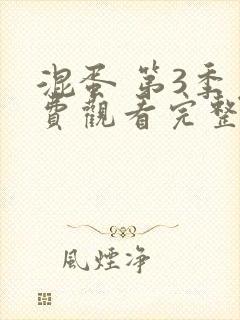 混蛋 第3季
費觀看完整
風煙净